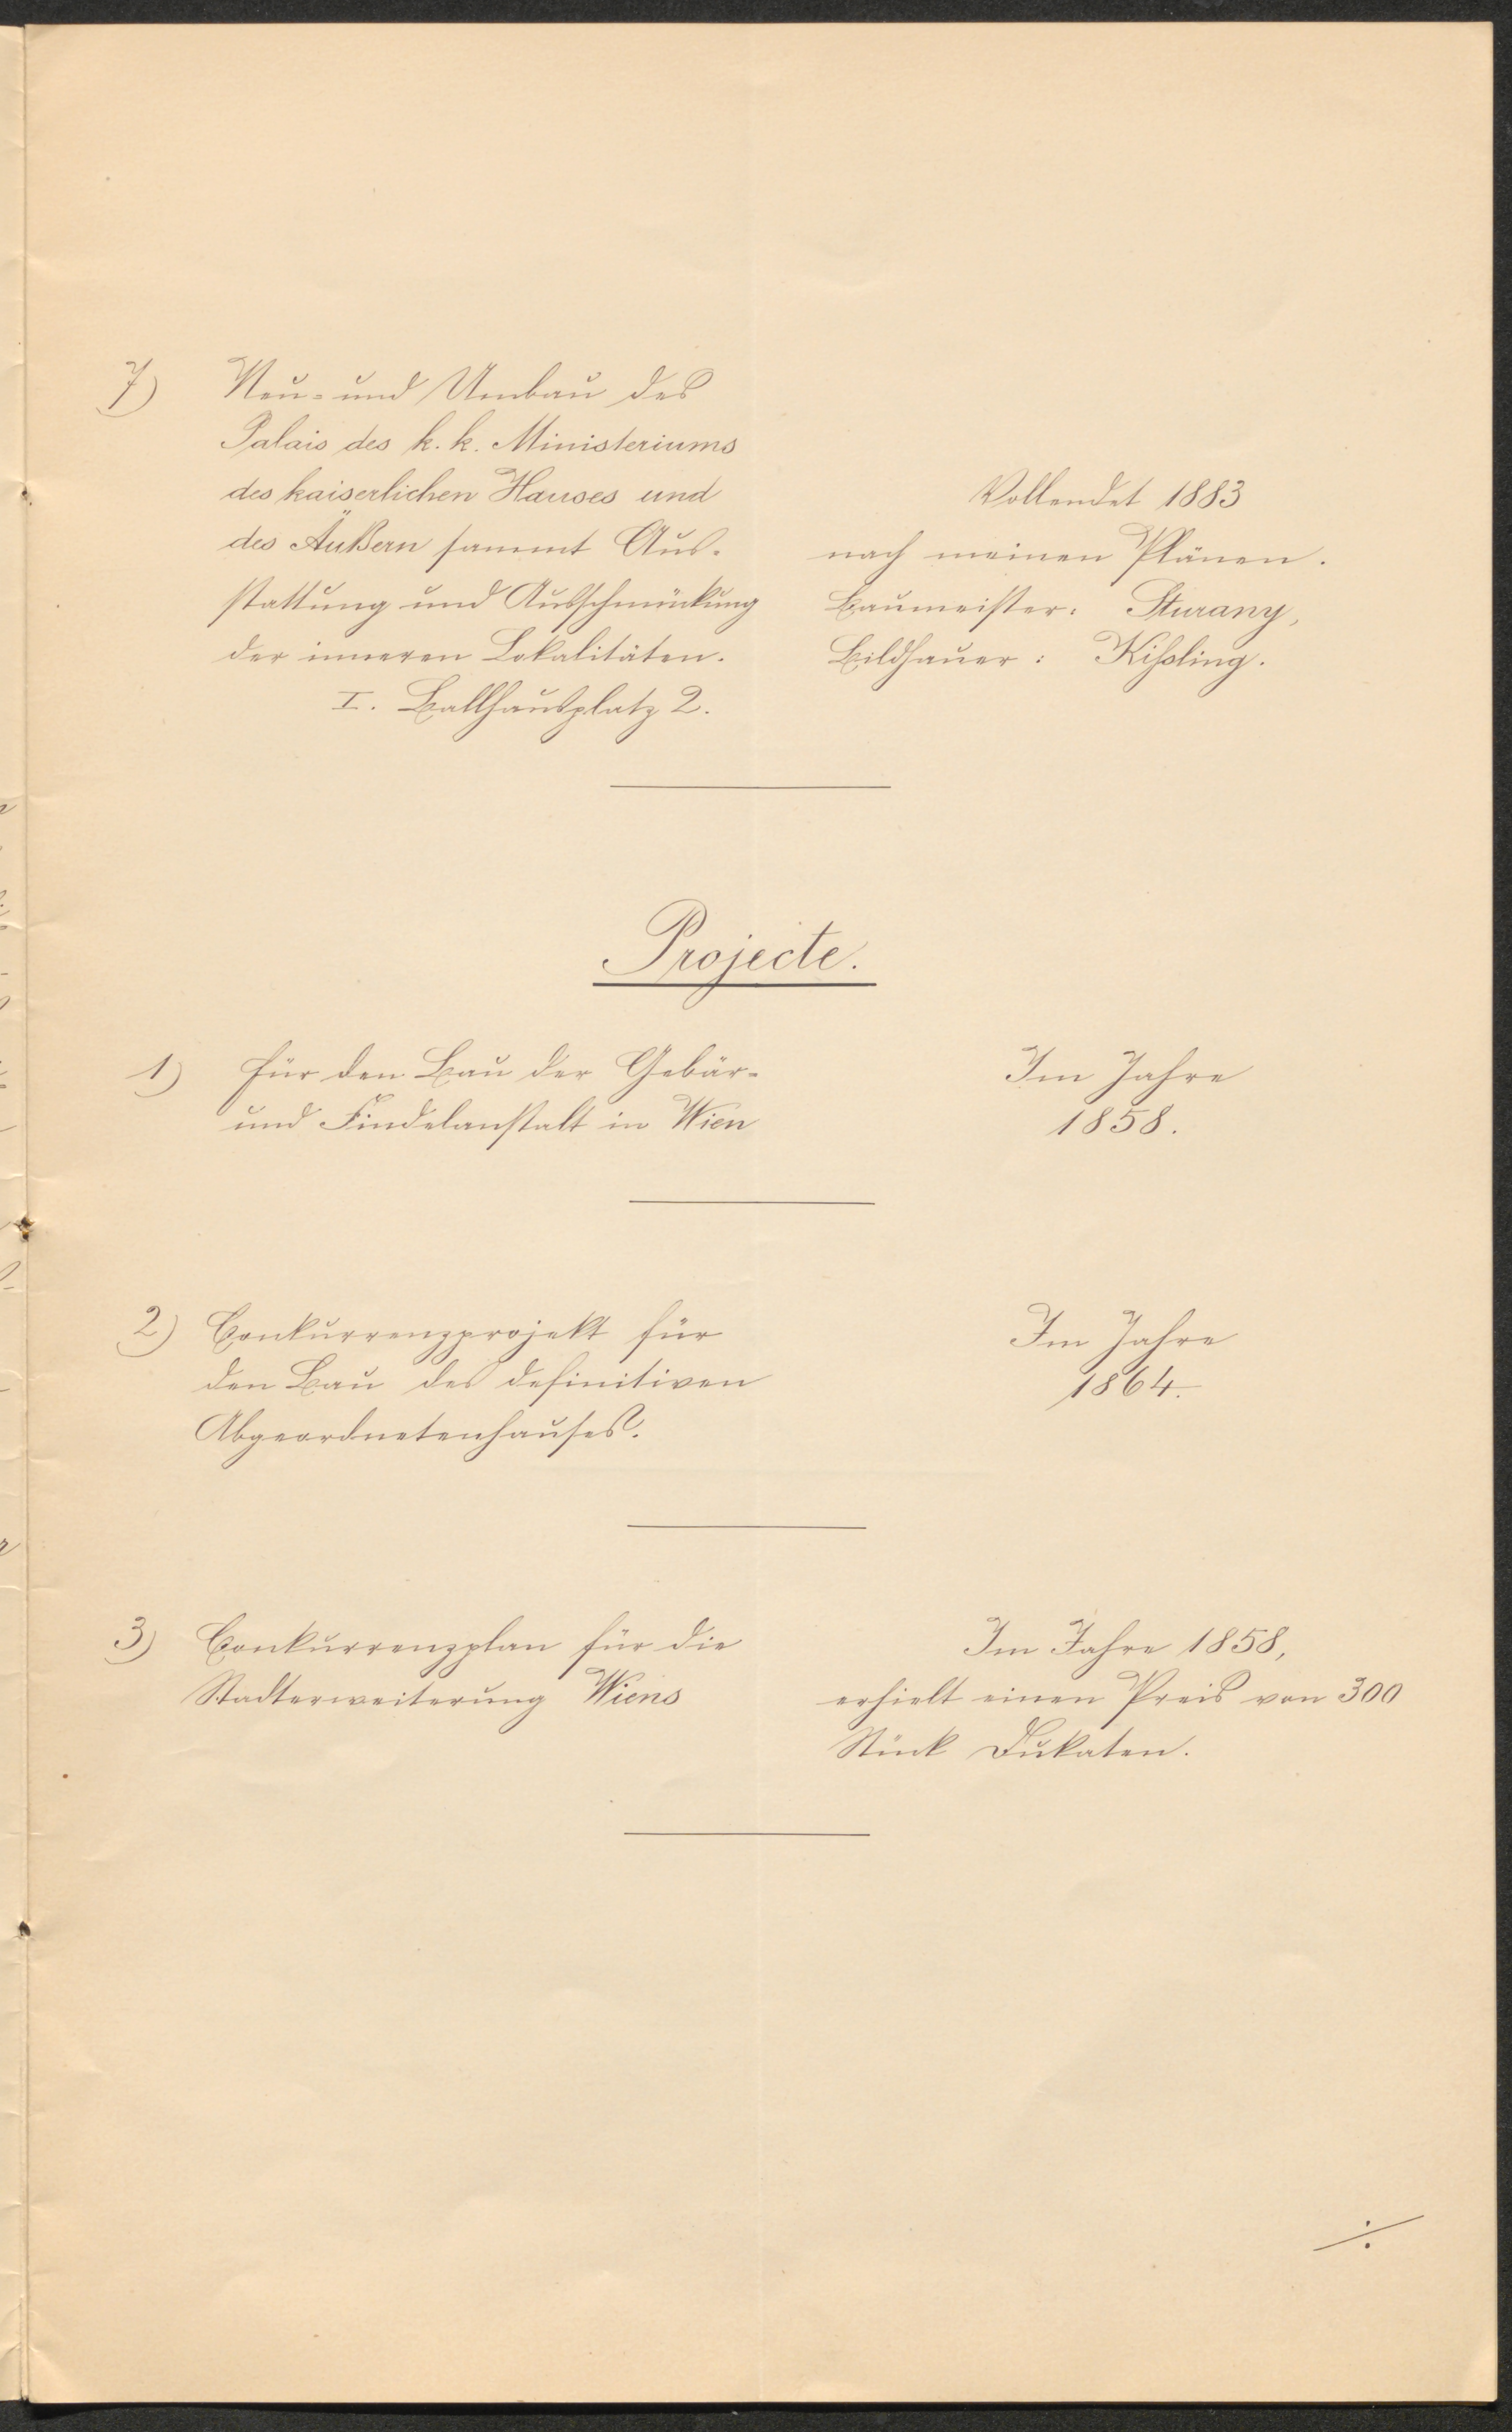 7) Neu- und Umbau des
Palais des k. k. Ministeriums
des kaiserlichen Hauses und
des Äußern sammt Aus-
stattung und Ausschmückung
der inneren Lokalitäten.
I. Ballhausplatz 2.
Vollendet 1883
nach meinen Plänen.
Baumeister: Sturany,
Bildhauer: Kißling.
Projecte.
1) für den Bau der Gebär-
und Findelanstalt in Wien
Im Jahre
1858.
2) Conkurrenzprojekt für
den Bau des definitiven
Abgeordnetenhauses.
Im Jahre
1864.
3) Conkurrenzplan für die
Stadterweiterung Wiens
Im Jahre 1858,
erhielt einen Preis von 300
Stück Dukaten.
./.